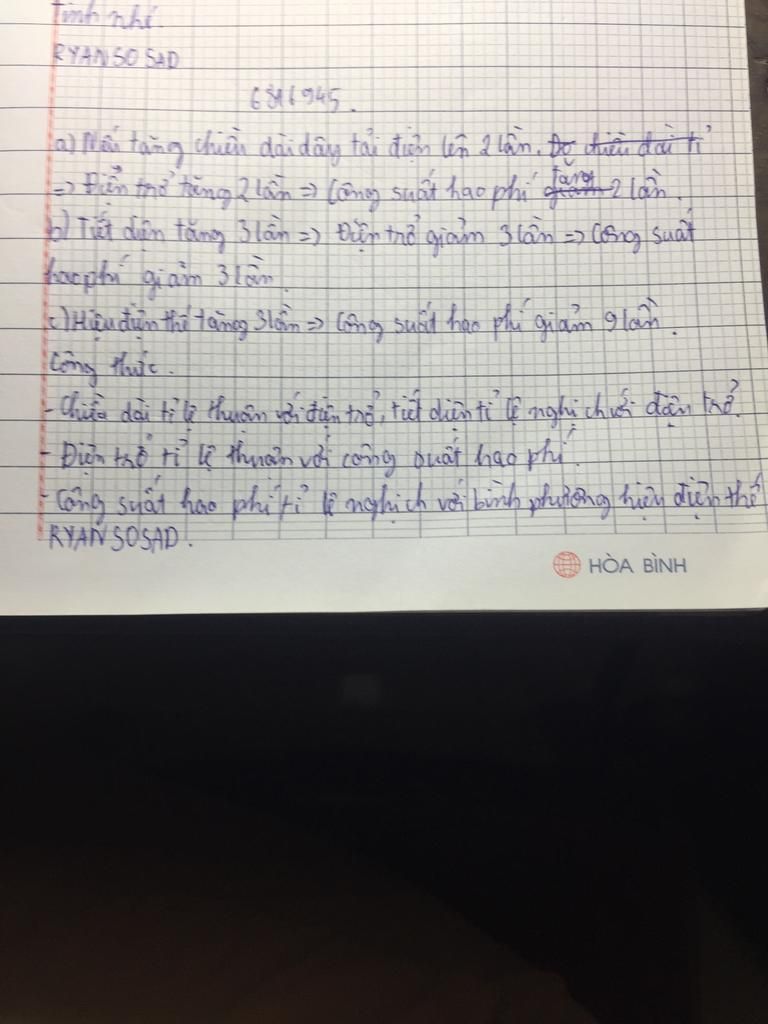 Tính nhé.
RYANSOSAD
6816945.
a) Nếu tăng chiều dài dây tải điện lên 2 lần. Do chiều dài tỉ
=> Điển trở tăng 2 lần => Công suất hao phí giảm tăng 2 lần.
b) Tiết diện tăng 3 lần => Điện trở giảm 3 lần => Công suất
hao phí giảm 3 lần.
c) Hiệu điện thế tăng 3 lần => Công suất hao phí giảm 9 lần.
Công thức.
- Chiều dài tỉ lệ thuận với điện trở, tiết diện tỉ lệ nghịch với điện trở.
- Điện trở tỉ lệ thuận với công suất hao phí.
- Công suất hao phí tỉ lệ nghịch với bình phương hiệu điện thế
RYANSOSAD.
HÒA BÌNH